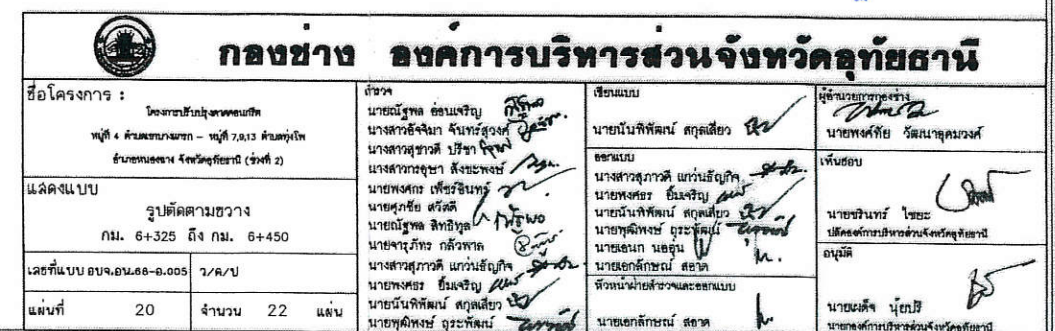 กองช่าง องค์การบริหารส่วนจังหวัดอุทัยธานี
ชื่อโครงการ :
โครงการปรับปรุงลาดคอนกรีต
หมู่ที่ 4 ตำบลเขาบางแกรก – หมู่ที่ 7,9,13 ตำบลทุ่งโพ
อำเภอหนองฉาง จังหวัดอุทัยธานี (ช่วงที่ 2)
แสดงแบบ
รูปตัดตามขวาง
กม. 6+325 ถึง กม. 6+450
เลขที่แบบ อบจ.อน.68-อ.005 ว/ด/ป
แผ่นที่ 20 จำนวน 22 แผ่น
สำรวจ
นายณัฐพล อ่อนเจริญ
นางสาวอัจจิมา จันทร์สุวงศ์
นางสาวสุชาวดี ปรีชา
นางสาวกรอุษา สังขะพงษ์
นายพงศกร เพ็ชร์อินทร์
นายศุภชัย สวัสดี
นายณัฐพล สิทธิทูล
นายจารุภัทร กล้วพาด
นางสาวสุภาวดี แกว่นธัญกิจ
นายพงศธร ยิ้มเจริญ
นายนันทิพัฒน์ สกุลเสี่ยว
นายพุฒิพงษ์ ถุระพัฒน์
เขียนแบบ
นายนันทิพัฒน์ สกุลเสี่ยว
ออกแบบ
นางสาวสุภาวดี แกว่นธัญกิจ
นายพงศธร ยิ้มเจริญ
นายนันทิพัฒน์ สกุลเสี่ยว
นายพุฒิพงษ์ ถุระพัฒน์
นายเอนก นออุ่น
นายเอกลักษณ์ สอาด
หัวหน้าฝ่ายสำรวจและออกแบบ
นายเอกลักษณ์ สอาด
ผู้อำนวยการกองช่าง
นายพงศ์ทัย วัฒนาอุดมวงศ์
เห็นชอบ
นายชรินทร์ ไชยะ
ปลัดองค์การบริหารส่วนจังหวัดอุทัยธานี
อนุมัติ
นายเผด็จ นุ้ยปรี
นายกองค์การบริหารส่วนจังหวัดอุทัยธานี